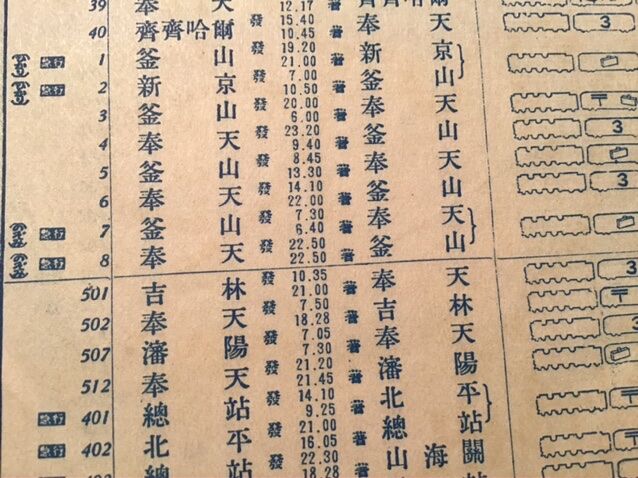 39 奉天 12.17 齊齊哈爾
40 齊齊哈爾 發 15.40 10.45 著 奉天 3
ひかり 急行 1 釜山 發 19.20 21.00 著 新京
ひかり 急行 2 新京 發 7.00 10.50 著 釜山 〒
3 釜山 發 20.00 6.00 著 奉天 3
4 奉天 發 23.20 9.40 著 釜山
5 釜山 發 8.45 13.30 著 奉天 3
6 奉天 發 14.10 22.00 著 釜山
のぞみ 急行 7 釜山 發 7.30 6.40 著 奉天
のぞみ 急行 8 奉天 發 22.50 22.50 著 釜山 3
501 吉林 發 10.35 21.00 著 奉天 〒
502 奉天 發 7.50 18.28 著 吉林 3
507 瀋陽 發 7.05 7.30 著 奉天
512 奉天 發 21.20 21.45 著 瀋陽 〒
急行 401 總站 發 14.10 9.25 著 北平
急行 402 北平 發 21.00 16.05 著 總站 〒
總站 發 22.30 18.28 著 山海關 3